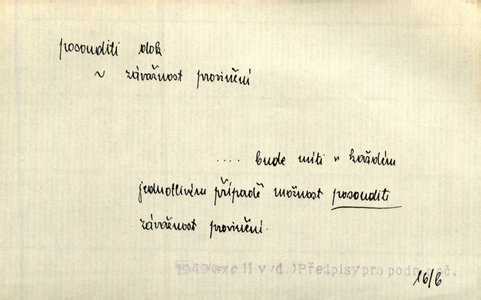 posouditi dok.
~ závažnost provinění
.... bude míti v každém
jednotlivém případě možnost posouditi
závažnost provinění.
1949 II v d.) Předpisy pro podn. úč.
16/6